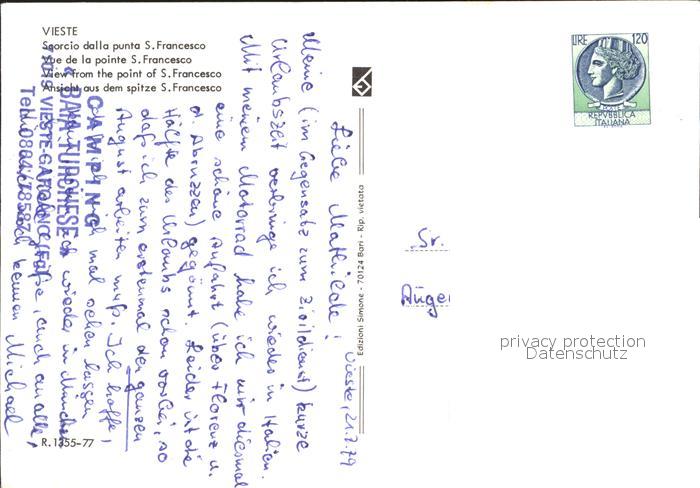 VIESTE
Scorcio dalla punta S. Francesco
Vue de la pointe S. Francesco
View from the point of S. Francesco
Ansicht aus dem spitze S. Francesco
CAMPING
"BAIA TURCHESE"
71019 VIESTE-GARGANO (FG)
Tel. 0884/78587
Vieste, 21.7.79
Liebe Mathilde!
Meine (im Gegensatz zum Zivildienst) kurze
Urlaubszeit verbringe ich wieder in Italien.
Mit meinem Motorrad habe ich mir diesmal
eine schöne Anfahrt (über Florenz u.
d. Abruzzen) gegönnt. Leider ist die
Hälfte des Urlaubs schon vorbei, so
daß ich zum erstenmal den ganzen
August arbeiten muß. Ich hoffe,
mal sehen lassen
wieder in München
Grüße, auch an alle,
kennen Michael
Edizioni Simone - 70124 Bari - Rip. vietata
LIRE 120
REPVBBLICA
ITALIANA
Sr.
Anger
privacy protection
Datenschutz
R. 1355-77